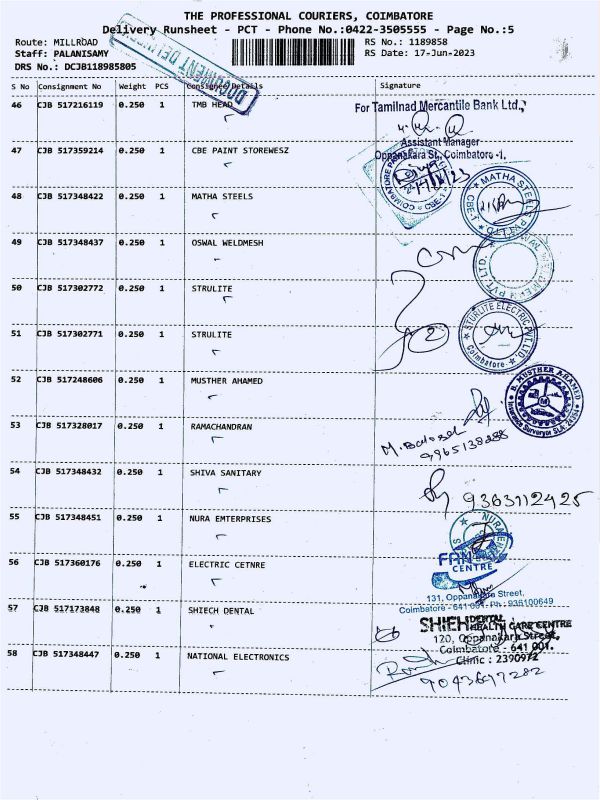 THE PROFESSIONAL COURIERS, COIMBATORE
Delivery Runsheet - PCT - Phone No.:0422-3505555 - Page No.:5
Route: MILLROAD RS No.: 1189858
Staff: PALANISAMY RS Date: 17-Jun-2023
DRS No.: DCJB118985805
DOCUMENT DELIVE
S No Consignment No Weight PCS Consignee Details Signature
46 CJB 517216119 0.250 1 TMB HEAD
For Tamilnad Mercantile Bank Ltd.,
Assistant Manager
Oppanakara St., Coimbatore -1.
47 CJB 517359214 0.250 1 CBE PAINT STOREWESZ
48 CJB 517348422 0.250 1 MATHA STEELS
MATHA STEELS PVT.LTD. CBE-1
49 CJB 517348437 0.250 1 OSWAL WELDMESH
50 CJB 517302772 0.250 1 STRULITE
51 CJB 517302771 0.250 1 STRULITE
STURLITE ELECTRIC PVT.LTD. Coimbatore
52 CJB 517248606 0.250 1 MUSTHER AHAMED
B. MUSTHER AHAMED
53 CJB 517328017 0.250 1 RAMACHANDRAN
54 CJB 517348432 0.250 1 SHIVA SANITARY
9363112425
55 CJB 517348451 0.250 1 NURA EMTERPRISES
56 CJB 517360176 0.250 1 ELECTRIC CETNRE
FAN
CENTRE
131, Oppanakara Street,
Coimbatore - 641 001.
57 CJB 517173848 0.250 1 SHIECH DENTAL
SHIEH DENTAL HEALTH CARE CENTRE
120, Oppanakara Street,
Coimbatore - 641 001.
Clinic : 2390972
58 CJB 517348447 0.250 1 NATIONAL ELECTRONICS
9043697282